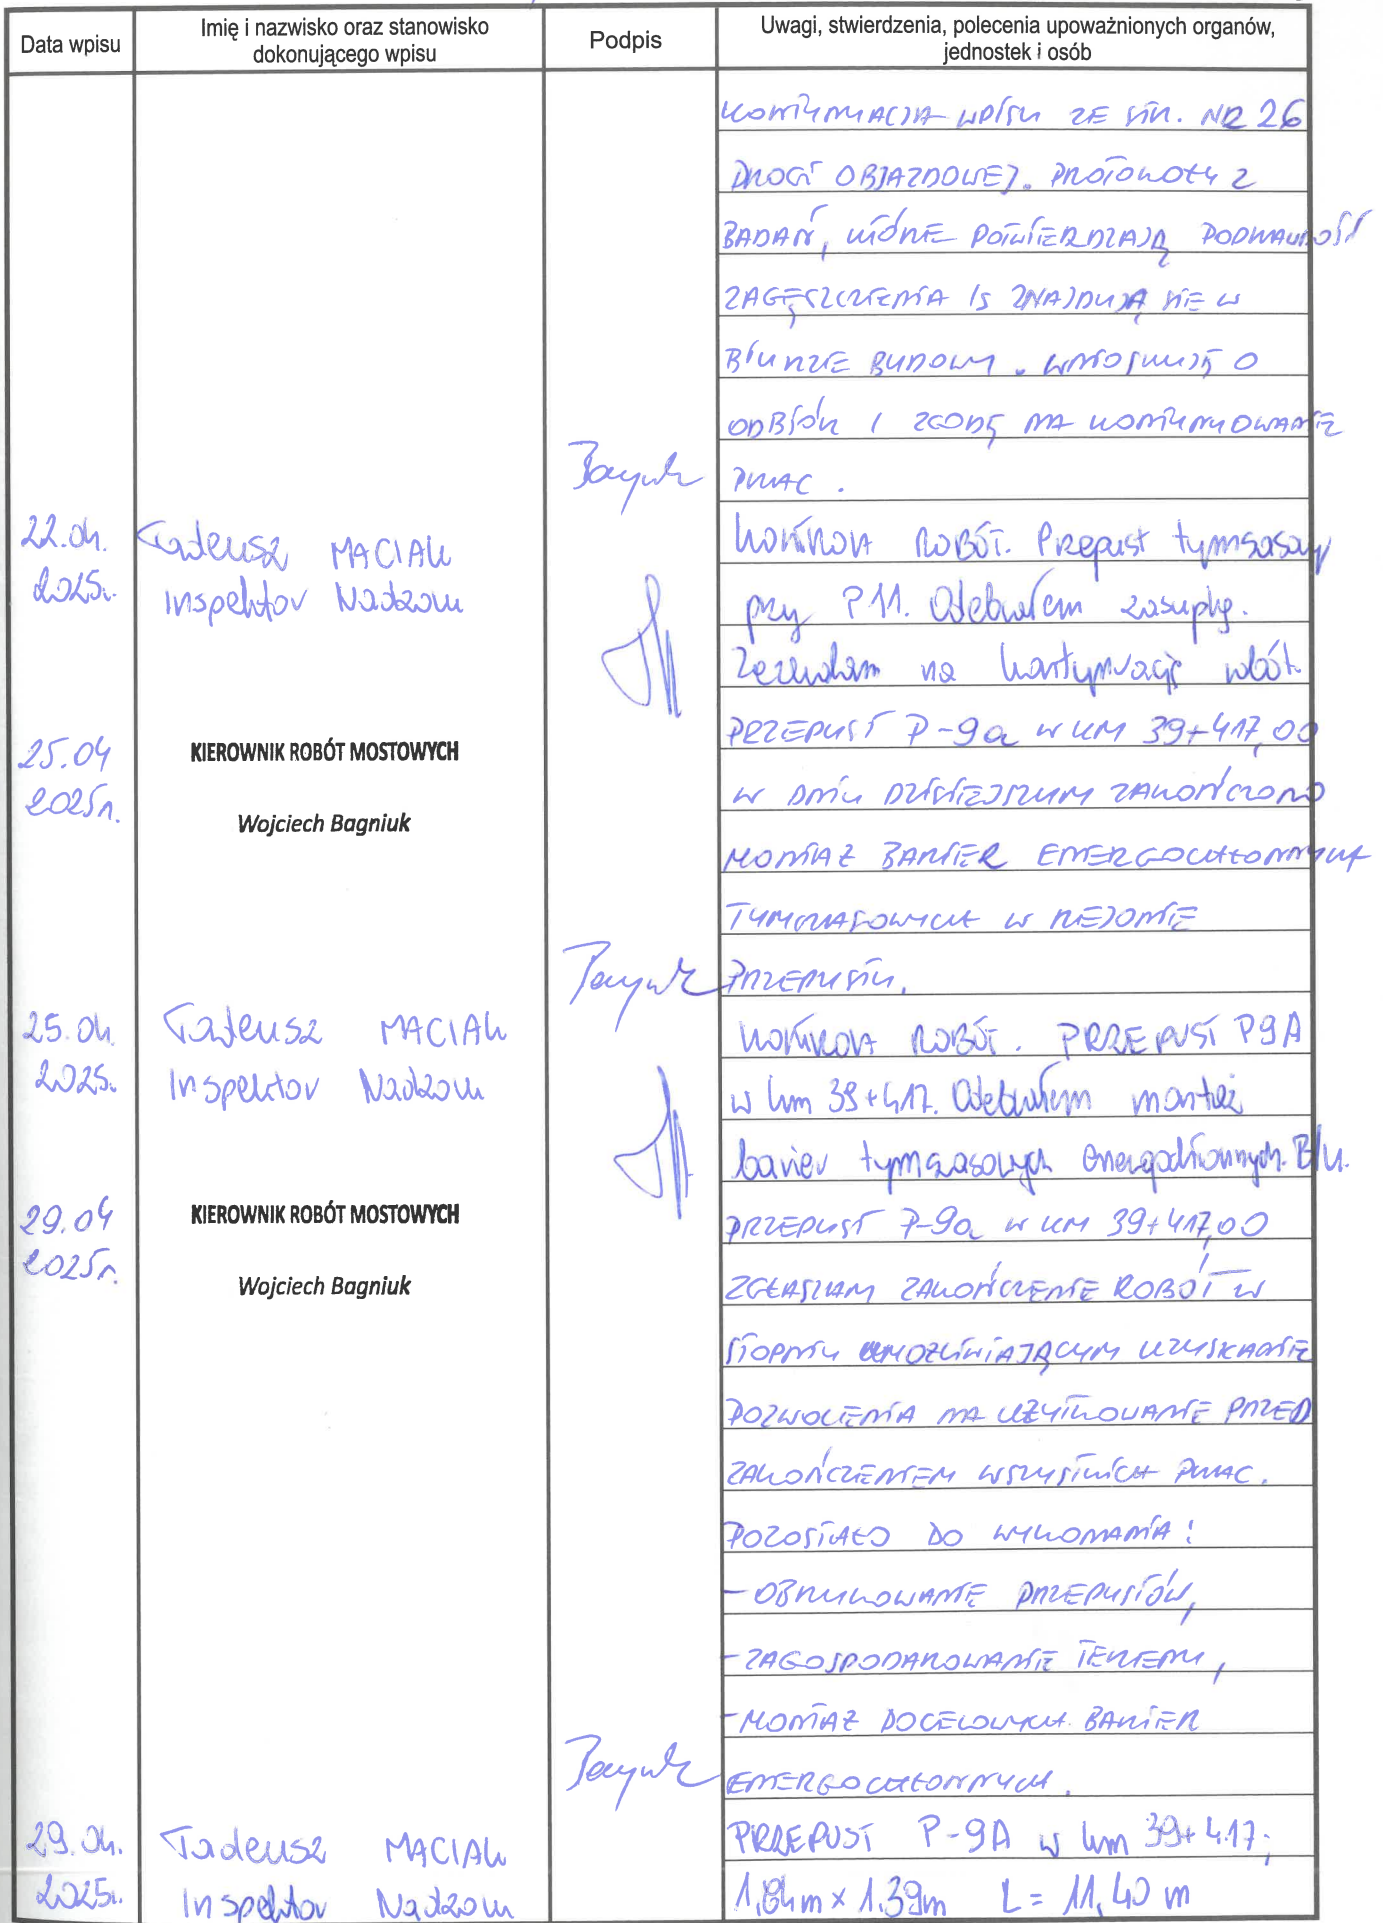 Data wpisu
Imię i nazwisko oraz stanowisko
dokonującego wpisu
Podpis
Uwagi, stwierdzenia, polecenia upoważnionych organów,
jednostek i osób
KONTYNUACJA WPISU ZE STR. NR 26
DROGI OBJAZDOWEJ. PROTOKOŁY Z
BADAŃ, KTÓRE POTWIERDZAJĄ
ZAGĘSZCZENIA IS ZNAJDUJĄ SIE W
BIURZE BUDOWY. WNIOSKUJĘ O
ODBIÓR I ZGODĘ NA KONTYNUOWANIE
PRAC.
22.04.
2025r.
Tadeusz MACIAK
Inspektor Nadzoru
KONTROLA ROBÓT. Przepust tymczasowy
przy P11. Odebrałem zasypkę.
Zezwalam na kontynuację robót.
25.04
2025r.
KIEROWNIK ROBÓT MOSTOWYCH
Wojciech Bagniuk
PRZEPUST P-9a W KM 39+417,00
W DNIU DZISIEJSZYM ZAKOŃCZONO
MONTAŻ BARIER ENERGOCHŁONNYCH
TYMCZASOWYCH W REJONIE
PRZEPUSTU.
25.04.
2025.
Tadeusz MACIAK
Inspektor Nadzoru
KONTROLA ROBÓT. PRZEPUST P9A
w km 39+417. Odebrałem montaż
barier tymczasowych energochłonnych. B/U.
29.04
2025r.
KIEROWNIK ROBÓT MOSTOWYCH
Wojciech Bagniuk
PRZEPUST P-9a W KM 39+417,00
ZGŁASZAM ZAKOŃCZENIE ROBÓT W
STOPNIU UMOŻLIWIAJĄCYM UZYSKANIE
POZWOLENIA NA UŻYTKOWANIE PRZED
ZAKOŃCZENIEM WSZYSTKICH PRAC.
POZOSTAŁO DO WYKONANIA:
- OBRUKOWANIE PRZEPUSTÓW,
- ZAGOSPODAROWANIE TERENU,
- MONTAŻ DOCELOWYCH BARIER
ENERGOCHŁONNYCH.
29.04.
2025r.
Tadeusz MACIAK
Inspektor Nadzoru
PRZEPUST P-9A w km 39+417;
1,84m x 1,39m L = 11,40 m